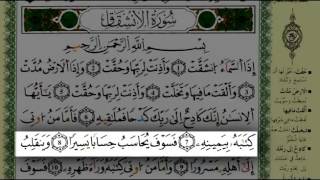 سُورَةُ الِانْشِقَاقِ
بِسْمِ اللَّهِ الرَّحْمَٰنِ الرَّحِيمِ
إِذَا السَّمَاءُ انشَقَّتْ ١ وَأَذِنَتْ لِرَبِّهَا وَحُقَّتْ ٢ وَإِذَا الْأَرْضُ مُدَّتْ
٣ وَأَلْقَتْ مَا فِيهَا وَتَخَلَّتْ ٤ وَأَذِنَتْ لِرَبِّهَا وَحُقَّتْ ٥ يَٰأَيُّهَا
الْإِنسَٰنُ إِنَّكَ كَادِحٌ إِلَىٰ رَبِّكَ كَدْحًا فَمُلَٰقِيهِ ٦ فَأَمَّا مَنْ أُوتِيَ
كِتَٰبَهُ بِيَمِينِهِ ٧ فَسَوْفَ يُحَاسَبُ حِسَابًا يَسِيرًا ٨ وَيَنقَلِبُ
إِلَىٰ أَهْلِهِ مَسْرُورًا ٩ وَأَمَّا مَنْ أُوتِيَ كِتَٰبَهُ وَرَاءَ ظَهْرِهِ ١٠ فَسَوْفَ